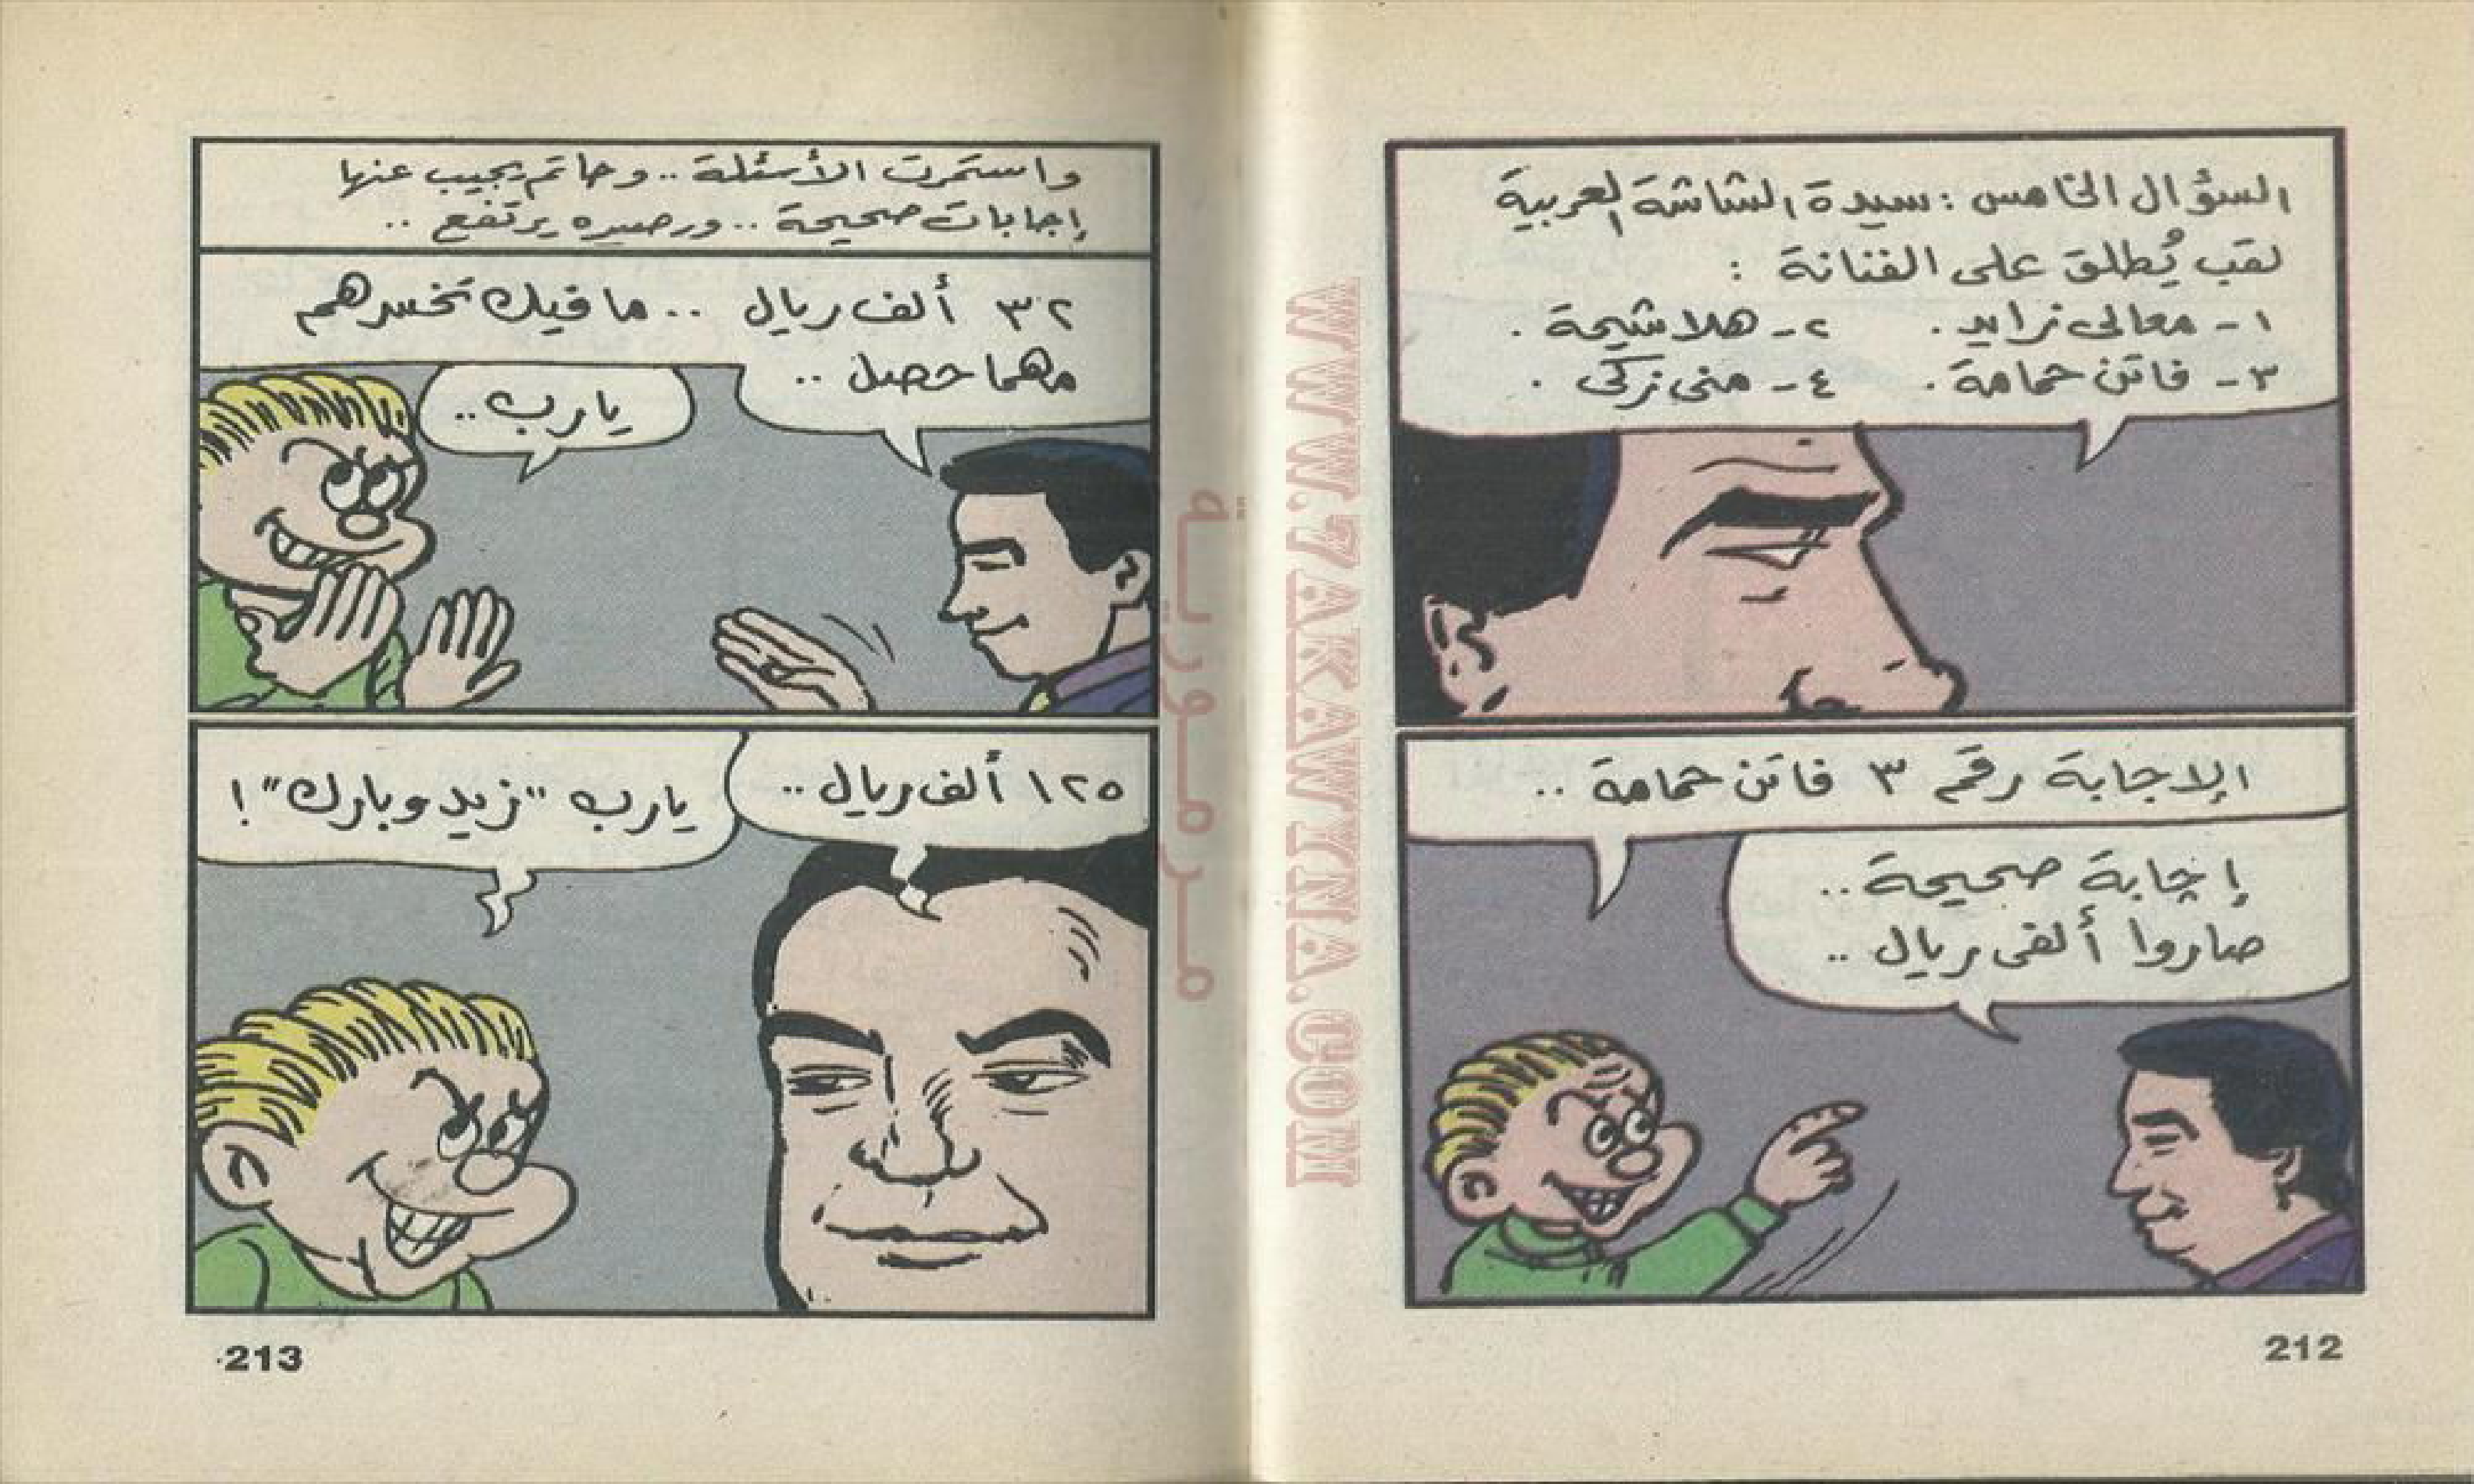 السؤال الخامس : سيدة الشاشة العربية
لقب يُطلق على الفنانة :
١ - معالى زايد . ٢ - هلا شيحة .
٣ - فاتن حمامة . ٤ - منى زكى .
الإجابة رقم ٣ فاتن حمامة ..
إجابة صحيحة ..
صاروا ألفى ريال ..
212
واستمرت الأسئلة .. وحاتم يجيب عنها
إجابات صحيحة .. ورصيده يرتفع ..
٣٢ ألف ريال .. ما فيك تخسرهم
مهما حصل ..
يارب ..
١٢٥ ألف ريال ..
يارب "زيد وبارك" !
213
مرمورية
WWW.7AKAWYNA.COM